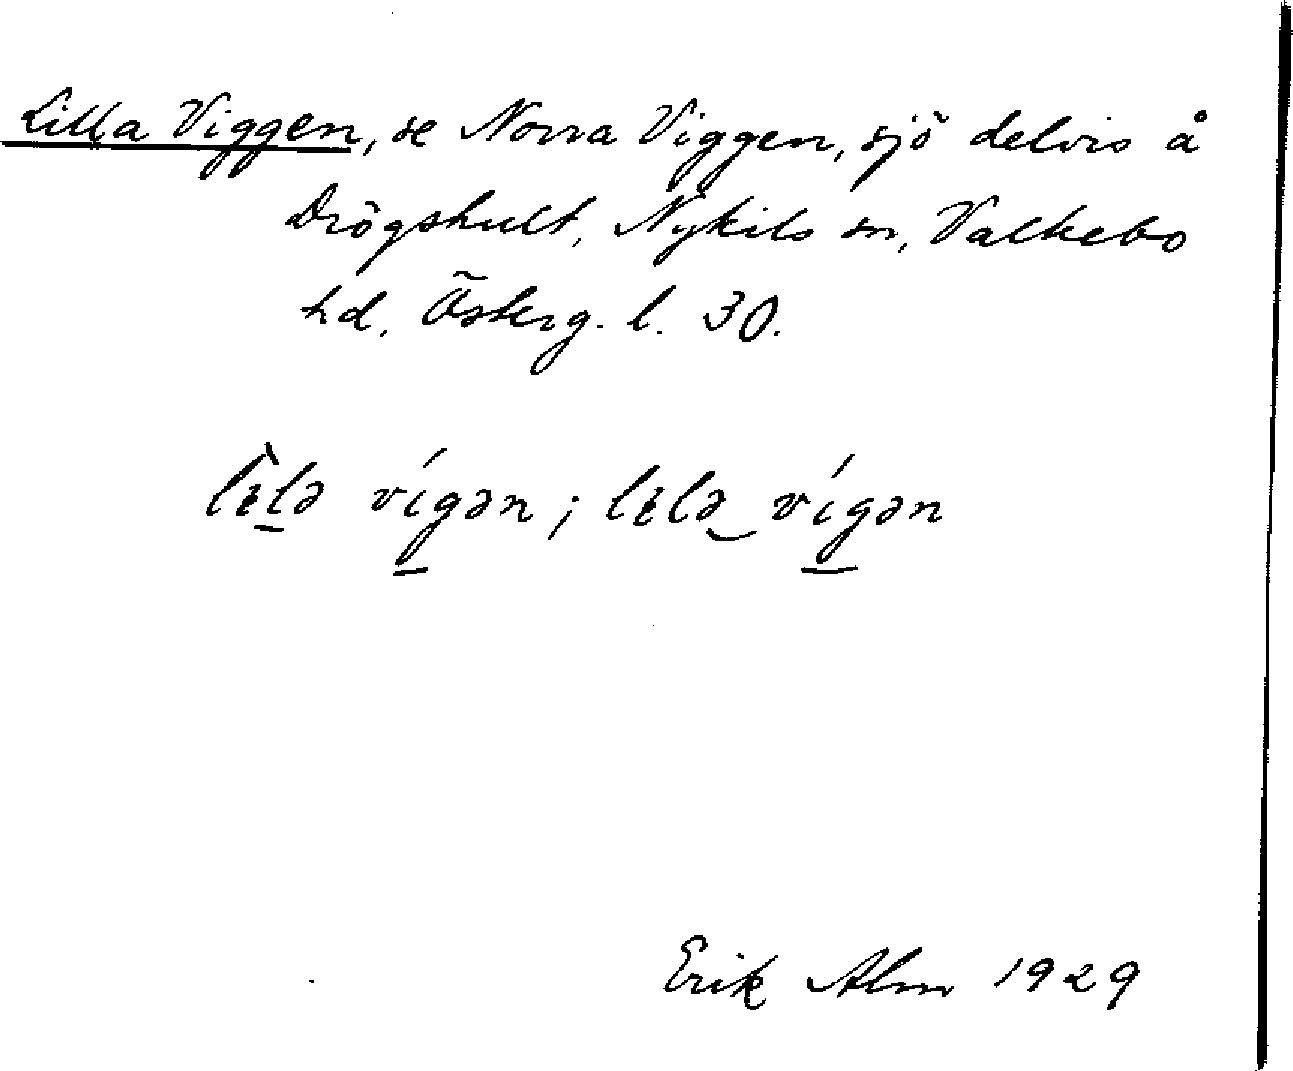 Lilla Viggen, se Norra Viggen, sjö delvis å
Drögshult, Nykils sn, Valkebo
hd. Österg. l. 30.
lìlə vígən; lilə‿vígən
Erik Alm 1929